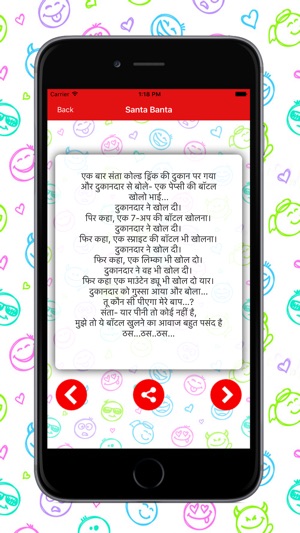 Carrier
1:18 PM
Back
Santa Banta
एक बार संता कोल्ड ड्रिंक की दुकान पर गया
और दुकानदार से बोले- एक पेप्सी की बॉटल
खोलो भाई...
दुकानदार ने खोल दी।
फिर कहा, एक 7-अप की बॉटल खोलना।
दुकानदार ने खोल दी।
फिर कहा, एक स्प्राइट की बॉटल भी खोलना।
दुकानदार ने खोल दी।
फिर कहा, एक लिम्का भी खोल दो।
दुकानदार ने वह भी खोल दी।
फिर कहा एक माउंटेन ड्यू भी खोल दो यार।
दुकानदार को गुस्सा आया और बोला...
तू कौन सी पीएगा मेरे बाप...?
संता- यार पीनी तो कोई नहीं है,
मुझे तो ये बॉटल खुलने का आवाज बहुत पसंद है
ठस...ठस..ठस...